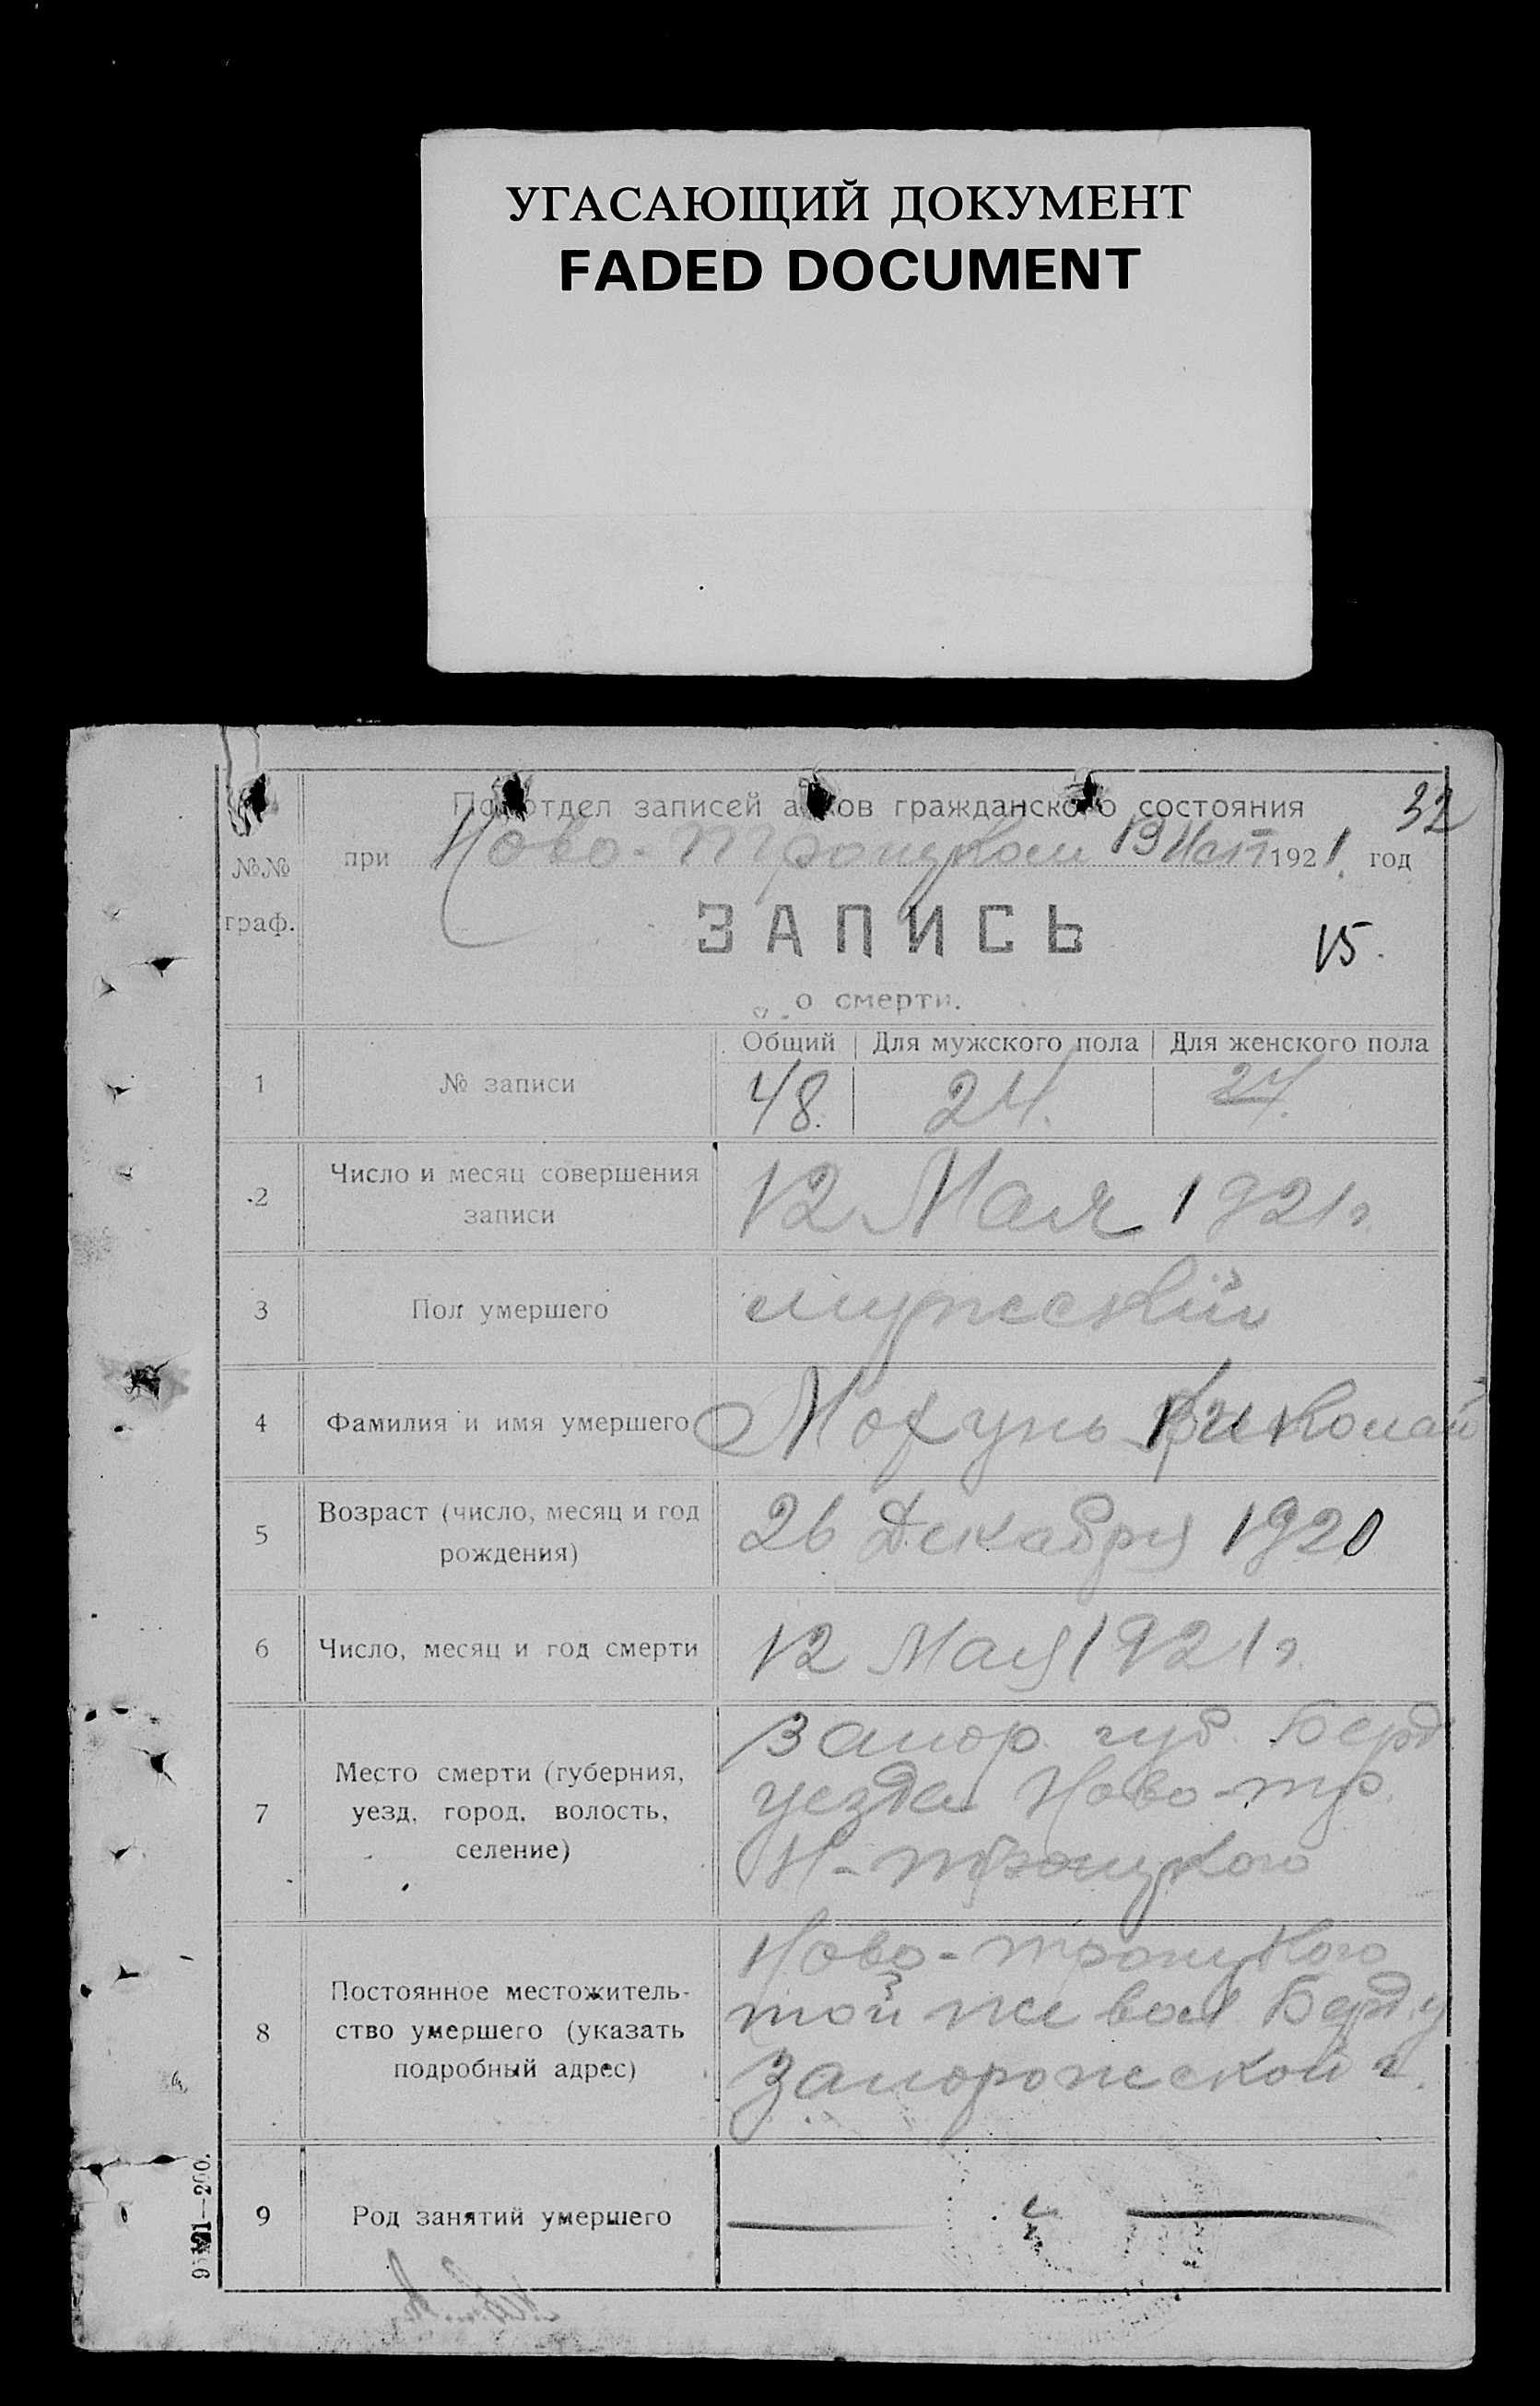 УГАСАЮЩИЙ ДОКУМЕНТ
FADED DOCUMENT
32
Подотдел записей актов гражданского состояния
при Ново-Троицком 13 Мая 1921 год
№№
граф.
ЗАПИСЬ
15.
о смерти.
Общий Для мужского пола Для женского пола
1 № записи 48. 24. 24.
2 Число и месяц совершения
записи
12 Мая 1921 г.
3 Пол умершего мужеский
4 Фамилия и имя умершего Мохунь Николай
5 Возраст (число, месяц и год
рождения)
26 Декабря 1920
6 Число, месяц и год смерти 12 Мая 1921 г.
7 Место смерти (губерния,
уезд, город, волость,
селение)
Запор. губ. Берд
уезда Ново-тр.
Н-троицкого
8 Постоянное местожитель-
ство умершего (указать
подробный адрес)
Ново-троицкого
той же вол Берд. у
Запорожской г.
9 Род занятий умершего